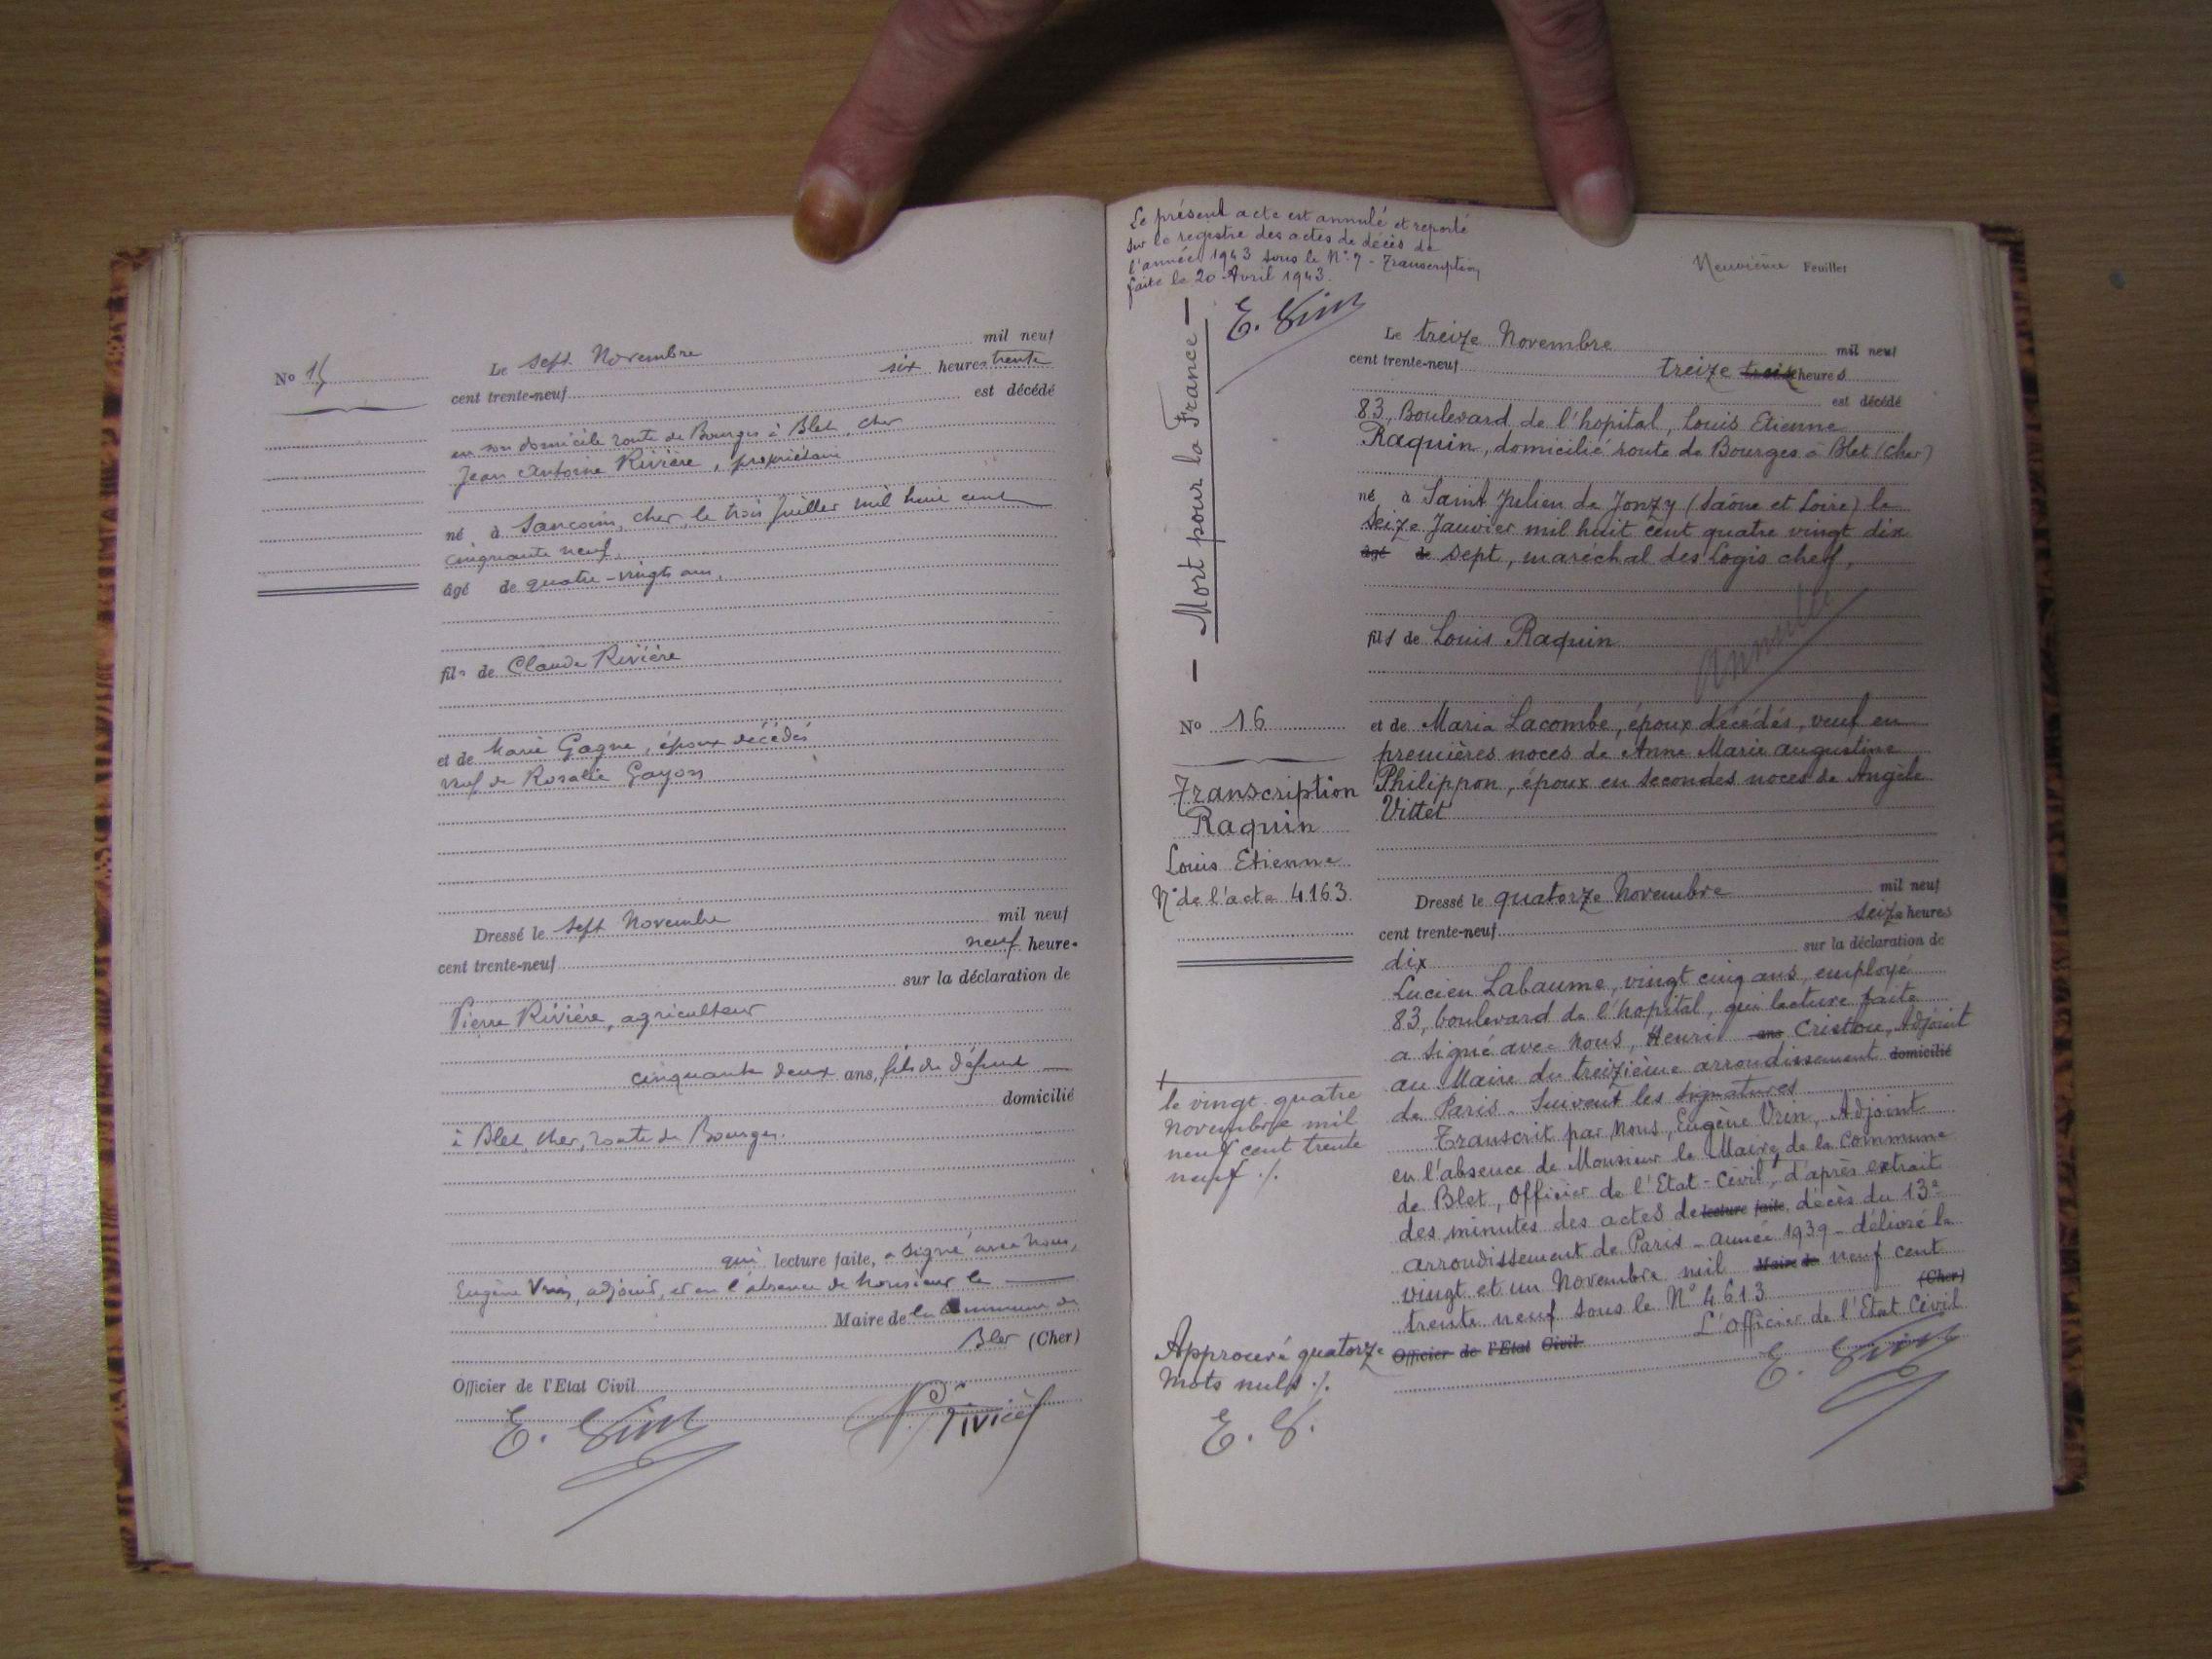 Nº 15
Le sept Novembre mil neuf
cent trente-neuf six heures trente
est décédé
en son domicile route de Bourges à Blet, Cher
Jean Antoine Rivière, propriétaire
né à Sancoins, Cher, le trois Juillet mil huit cent
cinquante neuf,
âgé de quatre-vingts ans,
fils de Claude Rivière
et de Marie Gagne, époux décédés
veuf de Rosalie Gayon
Dressé le sept Novembre mil neuf
cent trente-neuf neuf heures
sur la déclaration de
Pierre Rivière, agriculteur
cinquante deux ans, fils du défunt
domicilié
à Blet, Cher, route de Bourges.
qui lecture faite, a signé avec nous,
Eugène Vrin, adjoint, et en l'absence de monsieur le
Maire de la commune de
Blet (Cher)
Officier de l'Etat Civil
E. Vrin
P. Rivière
Le présent acte est annulé et reporté
sur le registre des actes de décès de
l'année 1943 sous le Nº 7 - Transcription
faite le 20 Avril 1943.
E. Vrin
Neuvième Feuillet
— Mort pour la France —
Le treize Novembre mil neuf
cent trente-neuf treize treize heures
est décédé
83, Boulevard de l'hopital, Louis Etienne
Raquin, domicilié route de Bourges à Blet (Cher)
né à Saint Julien de Jonzy (Saône et Loire) le
seize Janvier mil huit cent quatre vingt dix
âgé de sept, maréchal des Logis chef,
fils de Louis Raquin
Annulé
Nº 16
Transcription
Raquin
Louis Etienne
Nº de l'acte 4163
et de Maria Lacombe, époux décédés, veuf en
premières noces de Anne Marie augustine
Philippon, époux en secondes noces de Angèle
Vittet
Dressé le quatorze Novembre mil neuf
cent trente-neuf seize heures
dix sur la déclaration de
Lucien Labaume, vingt cinq ans, employé
83, boulevard de l'hopital, qui lecture faite
a signé avec nous, Henri ans Cristau, Adjoint
au Maire du treizième arrondissement domicilié
de Paris. Suivent les signatures
Transcrit par nous, Eugène Vrin, Adjoint
en l'absence de Monsieur le Maire de la commune
de Blet, Officier de l'Etat-Civil, + d'après extrait
des minutes des actes de lecture faite, décès du 13e
arrondissement de Paris - année 1939 - délivré le
vingt et un Novembre mil Maire de neuf cent
trente neuf sous le Nº 4613 (Cher)
Officier de l'Etat Civil L'Officier de l'Etat Civil
E. Vrin
+
le vingt quatre
Novembre mil
neuf cent trente
neuf ./.
Approuvé quatorze
mots nuls ./.
E. V.